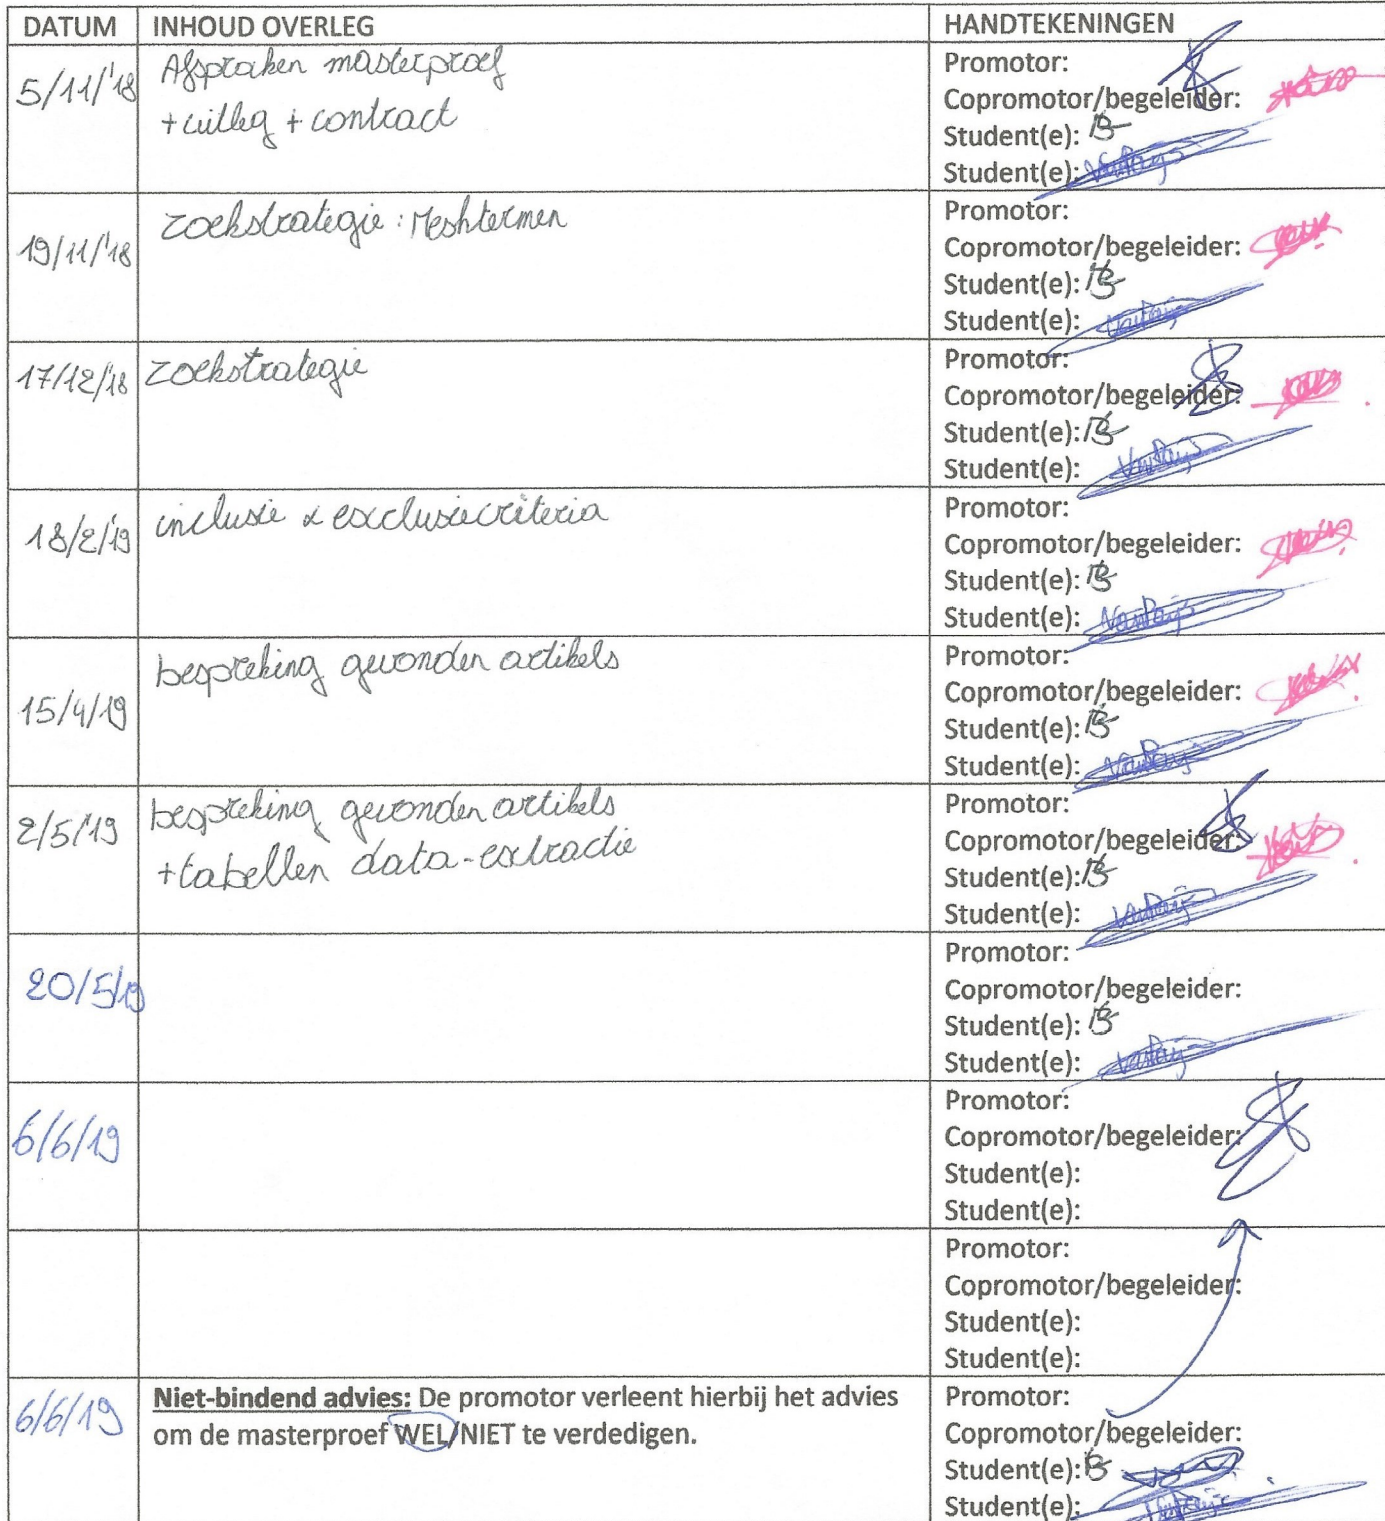 DATUM INHOUD OVERLEG HANDTEKENINGEN
5/11/'18 Afspraken masterproef
+ uitleg + contract
Promotor:
Copromotor/begeleider:
Student(e):
Student(e):
19/11/'18 Zoekstrategie: Meshtermen
Promotor:
Copromotor/begeleider:
Student(e):
Student(e):
17/12/'18 Zoekstrategie
Promotor:
Copromotor/begeleider:
Student(e):
Student(e):
18/2/'19 inclusie & exclusiecriteria
Promotor:
Copromotor/begeleider:
Student(e):
Student(e):
15/4/19 bespreking gevonden artikels
Promotor:
Copromotor/begeleider:
Student(e):
Student(e):
2/5/'19 bespreking gevonden artikels
+ tabellen data-extractie
Promotor:
Copromotor/begeleider:
Student(e):
Student(e):
20/5/19
Promotor:
Copromotor/begeleider:
Student(e):
Student(e):
6/6/19
Promotor:
Copromotor/begeleider:
Student(e):
Student(e):
Promotor:
Copromotor/begeleider:
Student(e):
Student(e):
6/6/19 Niet-bindend advies: De promotor verleent hierbij het advies
om de masterproef WEL/NIET te verdedigen.
Promotor:
Copromotor/begeleider:
Student(e):
Student(e):